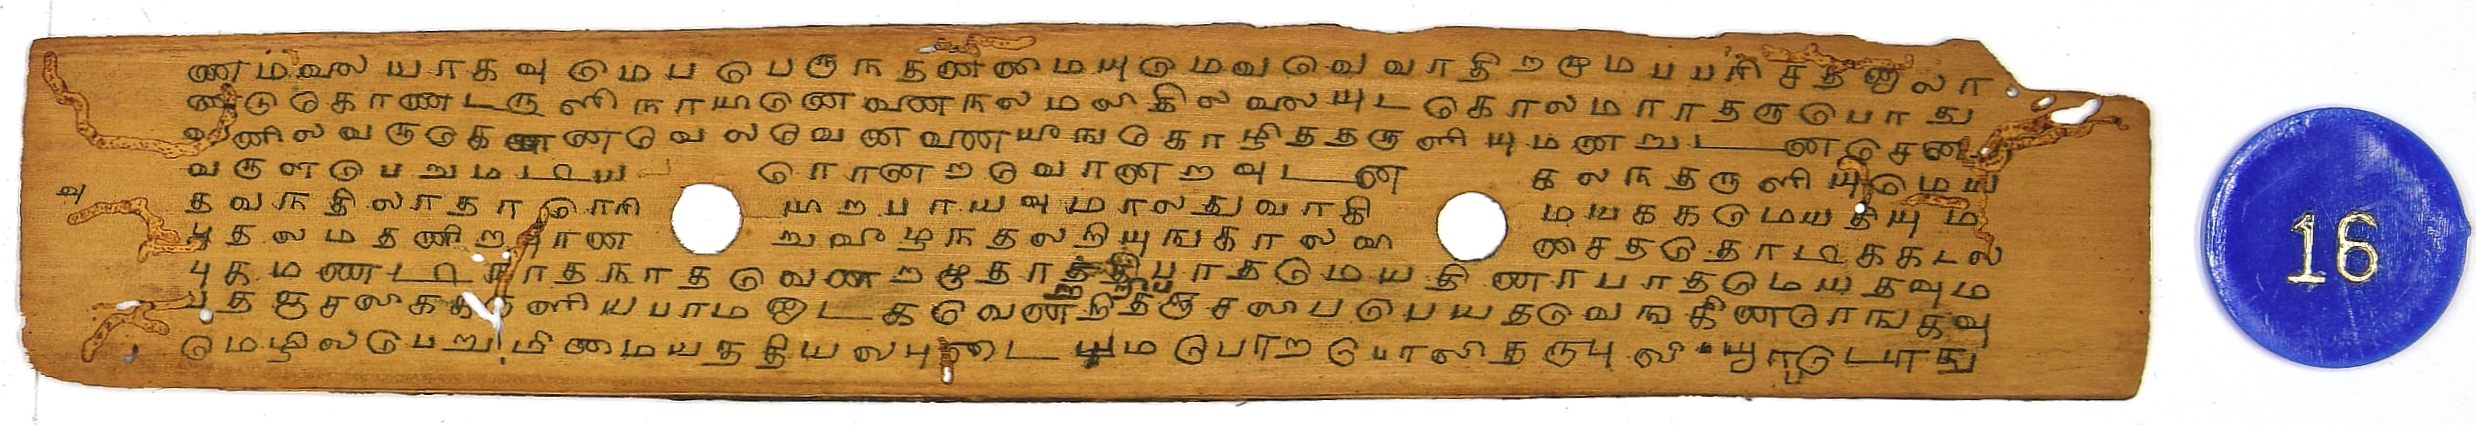 ணமவலையாகவுமெபபெருநதணமையுமெவவெவவாதிறமுமபபரிசதனுலா
ணடுகொணடருளிநாயணெவணநலமலிதிலவலையுடகொலமாரதருபொது
வுனிலவருகெ ணவெலவெவணவணயுஙகொழிததருளியுமணறுடனசெண
வருளபெறுமடிய ரொனறுவொனறவுடன கலநதருளியுமெய
தவநதிலாதாரொரி யறபாயவுமாலதுவாகி மயககமெயதியும
புதலமதணிறபுரண றுவிழநதலறியுஙகாலவி ணசததொடிககடல
புகமணடிநாதநாதவெணறழுதா பாதமெயதிணாபாதமெயதவும
பதஞசலிககருளியபரமனுடகவெணறிதஞசலிபபெயதவெஙகிணரொஙகவு
மெழிலபெறுமிமையததியலபுடைய மபொறபொலிதருபுலியூரபொது
16